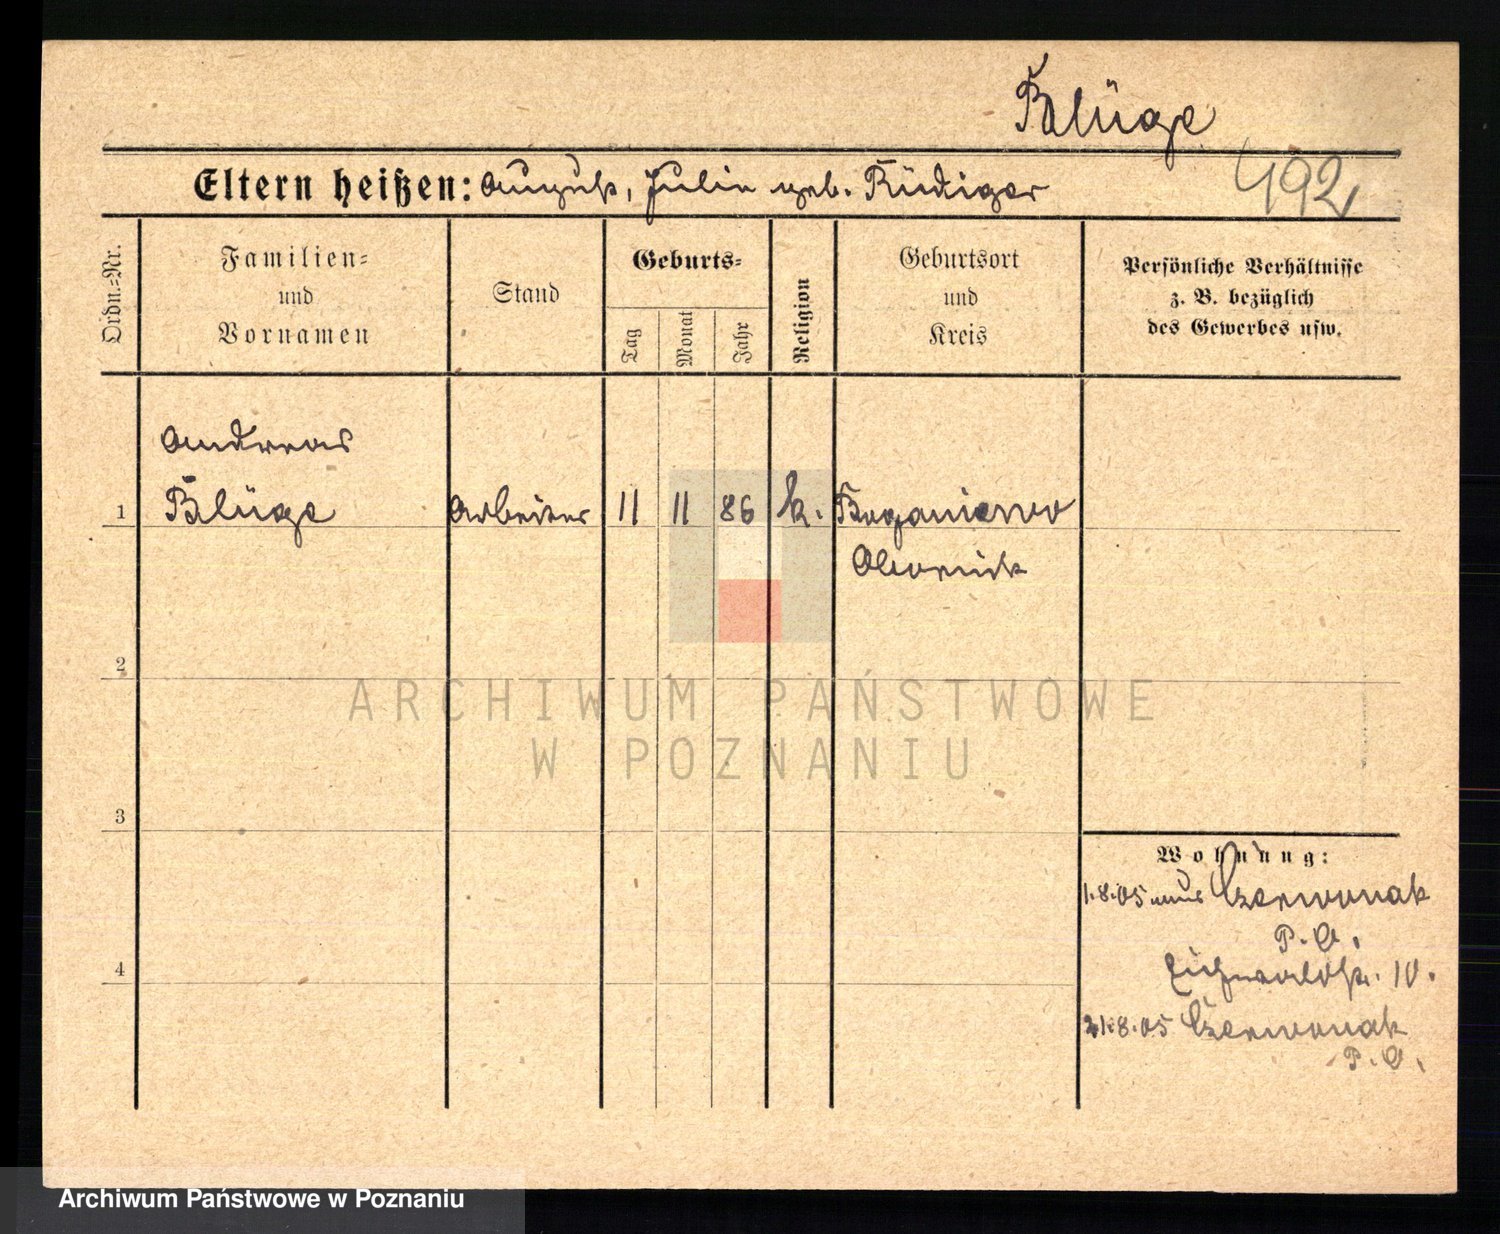 Blüge
492
Eltern heißen: August, Julie geb. Rüdiger
Ordn.-Nr.
Familien-
und
Vornamen
Stand
Geburts-
Tag
Monat
Jahr
Religion
Geburtsort
und
Kreis
Persönliche Verhältnisse
z. B. bezüglich
des Gewerbes usw.
Andreas
1 Blüge Arbeiter 11 11 86 k. Boganiewo
Obornik
2
ARCHIWUM PAŃSTWOWE
W POZNANIU
3
Wohnung:
1.8.05 aus Czerwonak
P. O.
Eichwaldstr. 10.
21.8.05 Czerwonak
P. O.
4
Archiwum Państwowe w Poznaniu